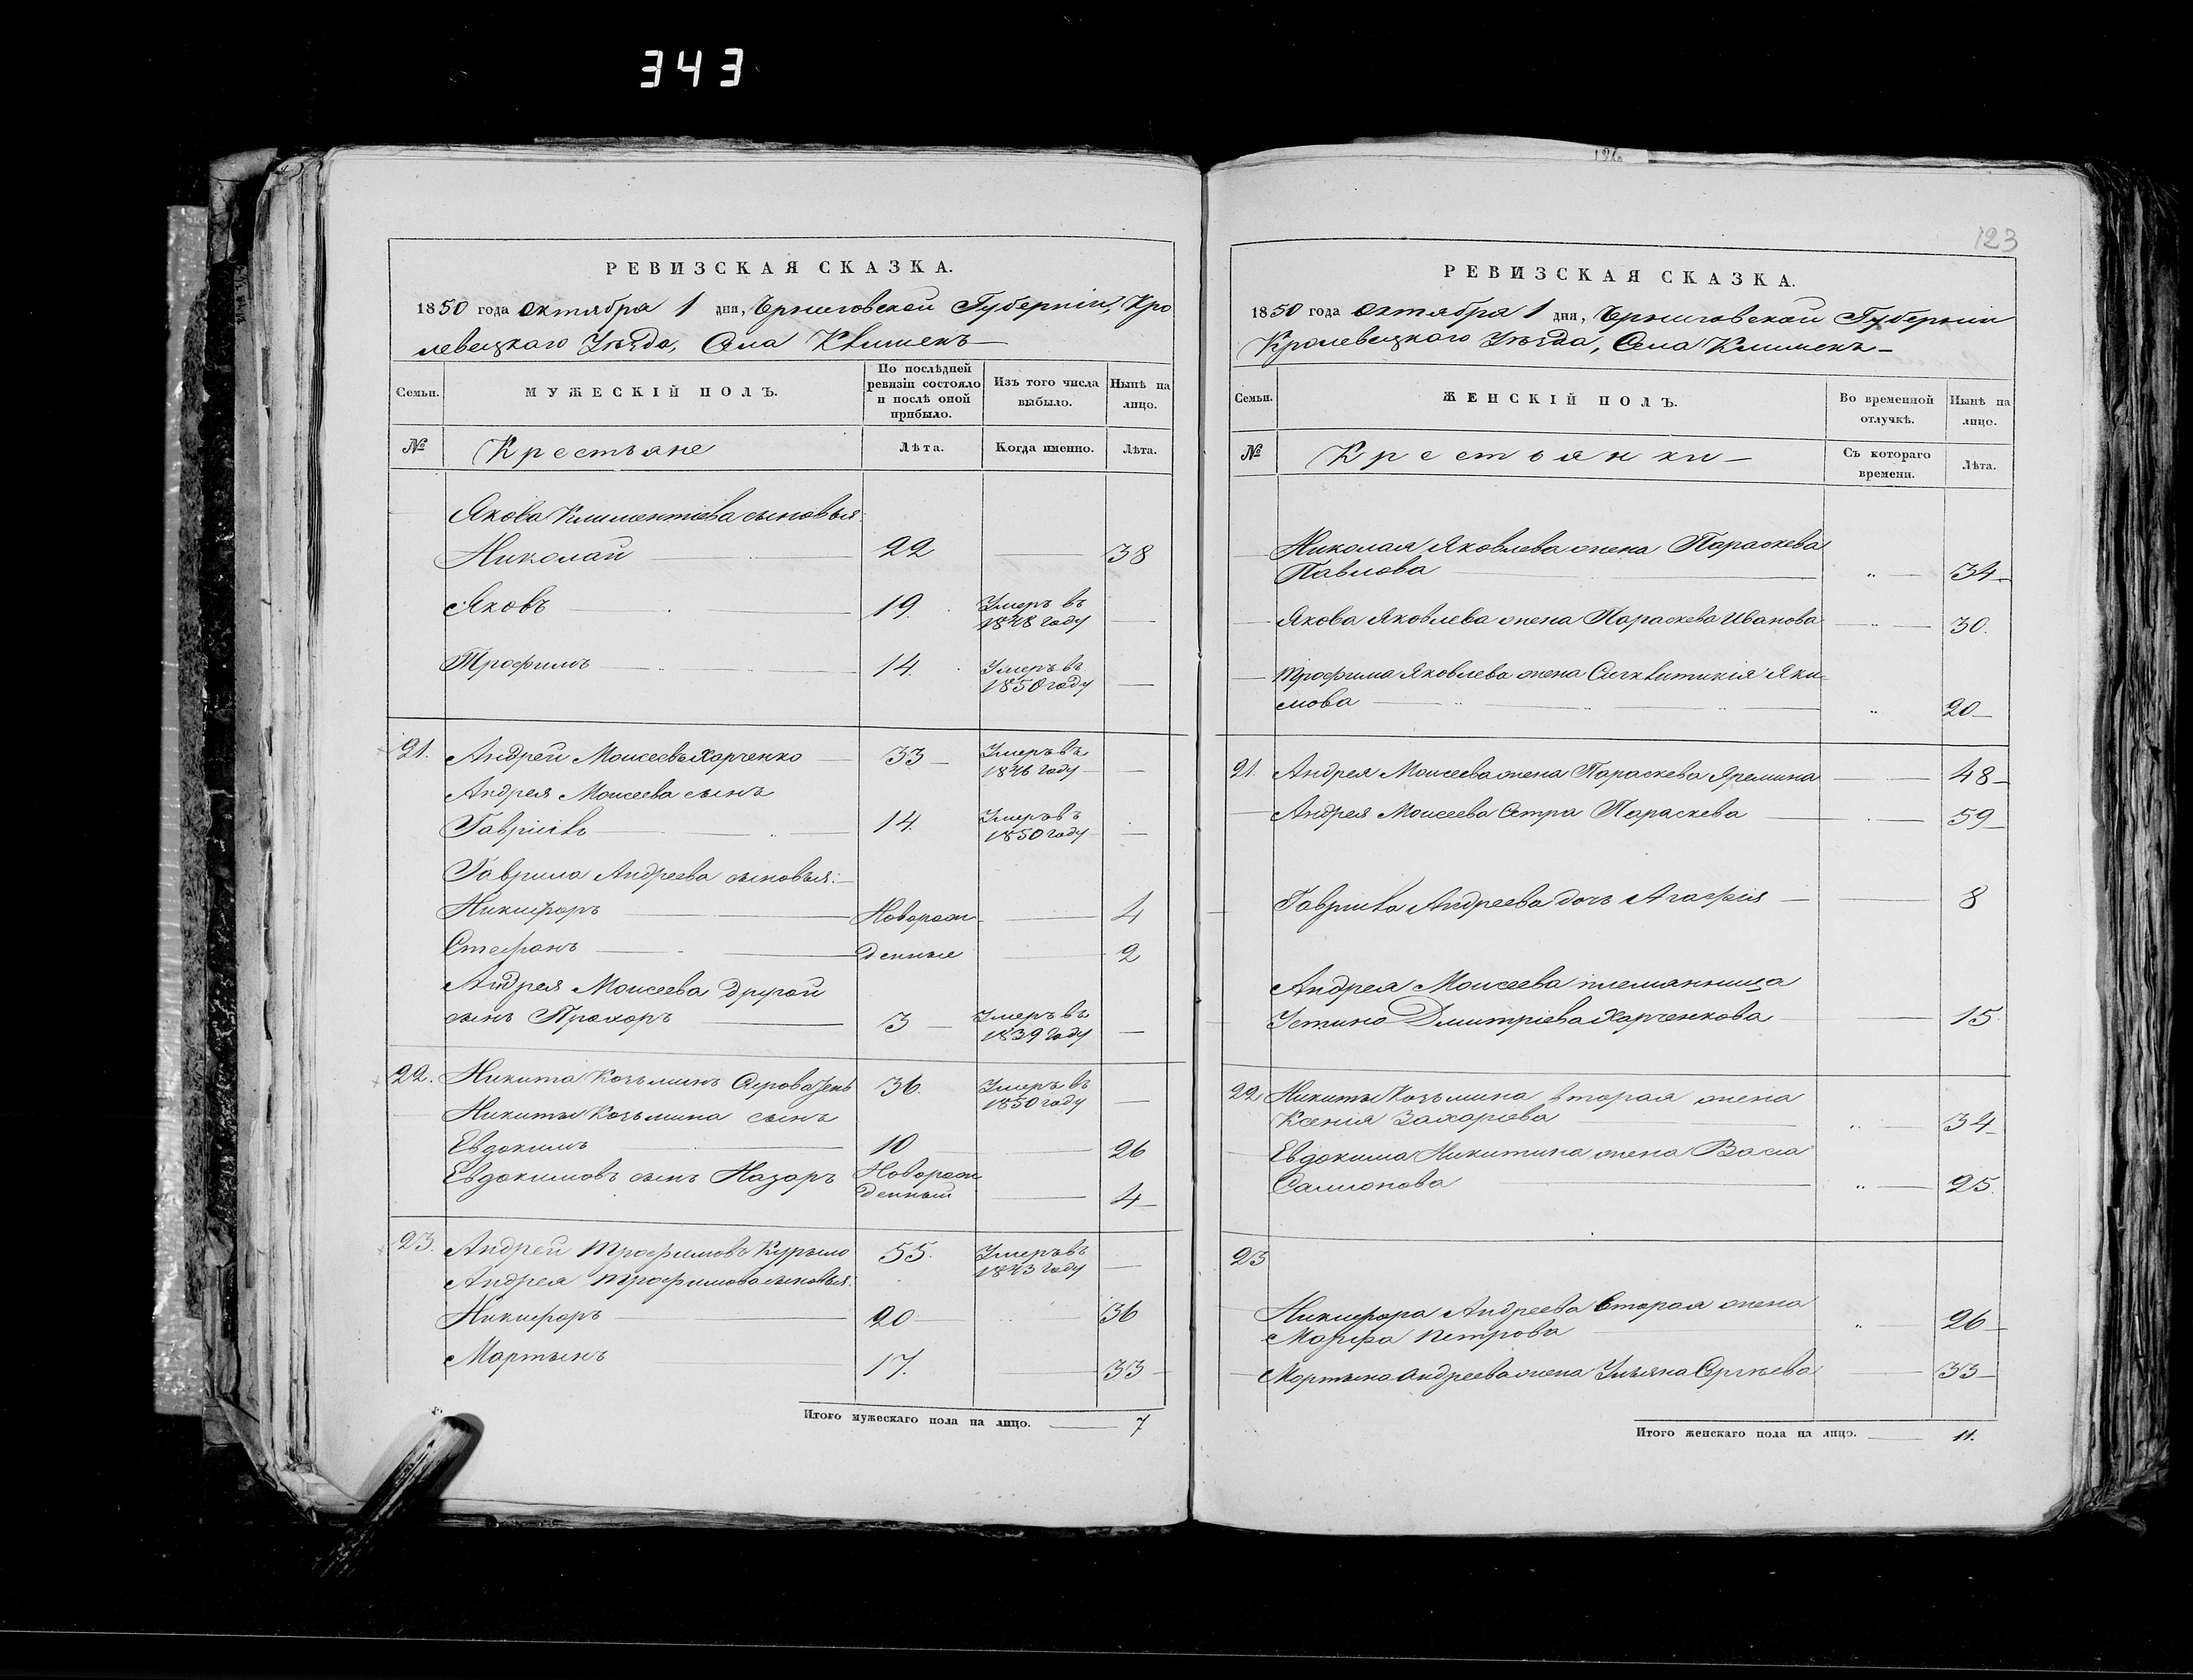 343
РЕВИЗСКАЯ СКАЗКА.
1850 года Октября 1 дня, Черниговской Губерніи, Кро
левецкаго Уѣзда, Села Клишекъ
Семьи.
МУЖЕСКІЙ ПОЛЪ.
По послѣдней
ревизіи состояло
и послѣ оной
прибыло.
Изъ того числа
выбыло.
Нынѣ на
лицо.
№
Крестьяне
Лѣта.
Когда именно.
Лѣта.
Якова Климентіева сыновья:
Николай 22 38
Яковъ 19. Умеръ въ
1848 году
Трофимъ 14. Умеръ въ
1850 году
21. Андрей Моисеевъ Харченко 33 Умеръ въ
1846 году
Андрея Моисеева сынъ
Гавріилъ 14. Умеръ въ
1850 году
Гаврила Андреева сыновья:
Никифоръ Новорож 4
Стефанъ денные 2
Андрея Моисеева другой
сынъ Прохоръ 3 Умеръ въ
1839 году
22. Никита Козьминъ 36. Умеръ въ
1850 году
Никиты Козьмина сынъ
Евдокимъ 10 26
Евдокимовъ сынъ Назаръ Новорож
денный 4
23. Андрей Трофимовъ Курыло 55. Умеръ въ
1843 году
Андрея Трофимова сыновья:
Никифоръ 20 36
Мартынъ 17. 33
Итого мужескаго пола на лицо. 7
126
123
РЕВИЗСКАЯ СКАЗКА.
1850 года Октября 1 дня, Черниговской Губерніи
Кролевецкаго Уѣзда, Села Клишекъ
Семьи.
ЖЕНСКІЙ ПОЛЪ.
Во временной
отлучкѣ.
Нынѣ на
лицо.
№
Крестьянки
Съ котораго
времени.
Лѣта.
Николая Яковлева жена Параскева
Павлова 34
Якова Яковлева жена Параскева Иванова 30.
Трофима Яковлева жена Сигклитикія Яки-
мова 20
21. Андрея Моисеева жена Параскева Яремина 48
Андрея Моисеева Сестра Параскева 59
Гавріила Андреева дочь Агафія 8
Андрея Моисеева племянница
Устина Дмитріева Харченкова 15.
22 Никиты Козьмина вторая жена
Ксенія Захарова 34
Евдокима Никитина жена Васса
Самионова 25.
23
Никифора Андреева Вторая жена
Марфа Петрова 26
Мартына Андреева жена Ульяна Сергѣева 33
Итого женскаго пола на лицо. 11.